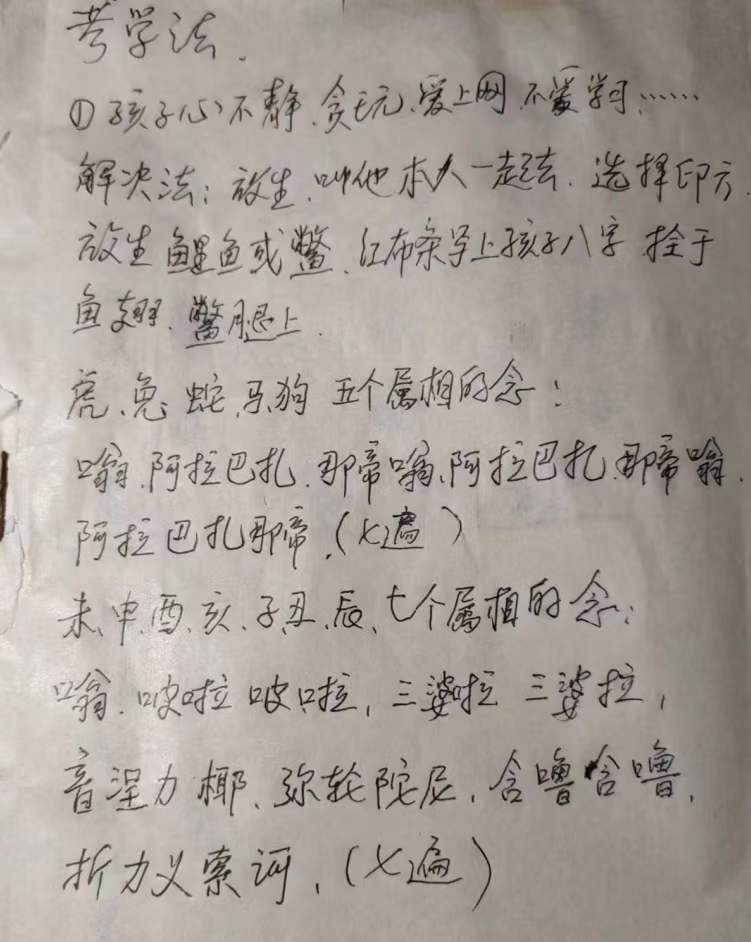 考学法、
①孩子心不静、贪玩、爱上网、不爱学习……
解决法：放生、叫他本人一起去、选择印方、
放生鲤鱼或鳖、红布条写上孩子八字 拴于
鱼翅、鳖腿上、
虎、兔、蛇、马、狗 五个属相的念：
嗡、阿拉巴扎、那帝嗡、阿拉巴扎、那帝嗡、
阿拉巴扎那帝、(七遍)
未、申、酉、亥、子、丑、辰、七个属相的念：
嗡、啵啦啵啦，三婆啦 三婆拉，
音涅力椰、弥轮陀尼，含噜含噜，
折力义索诃、(七遍)